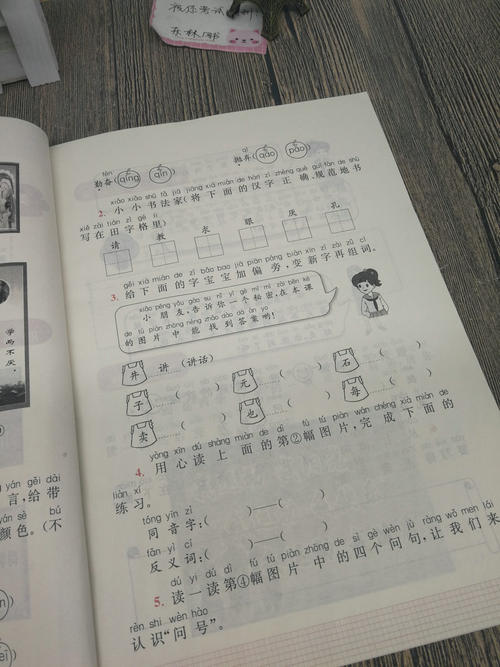 祝你考试
fèn
勤奋(qíng qín)
qì
抛弃(qāo pāo)
xiǎo xiǎo shū fǎ jiā jiāng xià miàn de hàn zì zhèng què guī fàn de shū
2. 小小书法家(将下面的汉字正确、规范地书
xiě zài tián zì gé lǐ
写在田字格里)
请 教 衣 眼 厌 孔
gěi xià miàn de zì bǎo bao jiā piān páng biàn xīn zì zài zǔ cí
3. 给下面的字宝宝加偏旁,变新字再组词。
xiǎo péng yǒu gào su nǐ yí gè mì mì zài běn kè
小朋友,告诉你一个秘密,在本课
de tú piàn zhōng néng zhǎo dào dá àn yo
的图片中能找到答案哟!
井 讲(讲话) 元 石
子 也 每
卖
yòng xīn dú shàng miàn de dì fú tú piàn wán chéng xià miàn de
4. 用心读上面的第②幅图片,完成下面的
liàn xí
练习。
tóng yīn zì
同音字:( )—( )
fǎn yì cí
反义词:( )—( )
dú yì dú dì fú tú piàn zhōng de sì gè wèn jù ràng wǒ men lái
5. 读一读第④幅图片中的四个问句,让我们来
rèn shi wèn hào
认识“问号”。
学而不厌,
yán gěi dài
言,给带
yán sè bú
颜色。(不